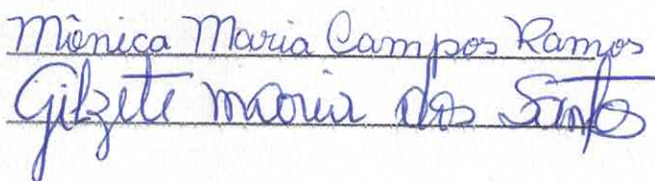 Mônica Maria Campos Ramos
Gilzete maria dos Santos